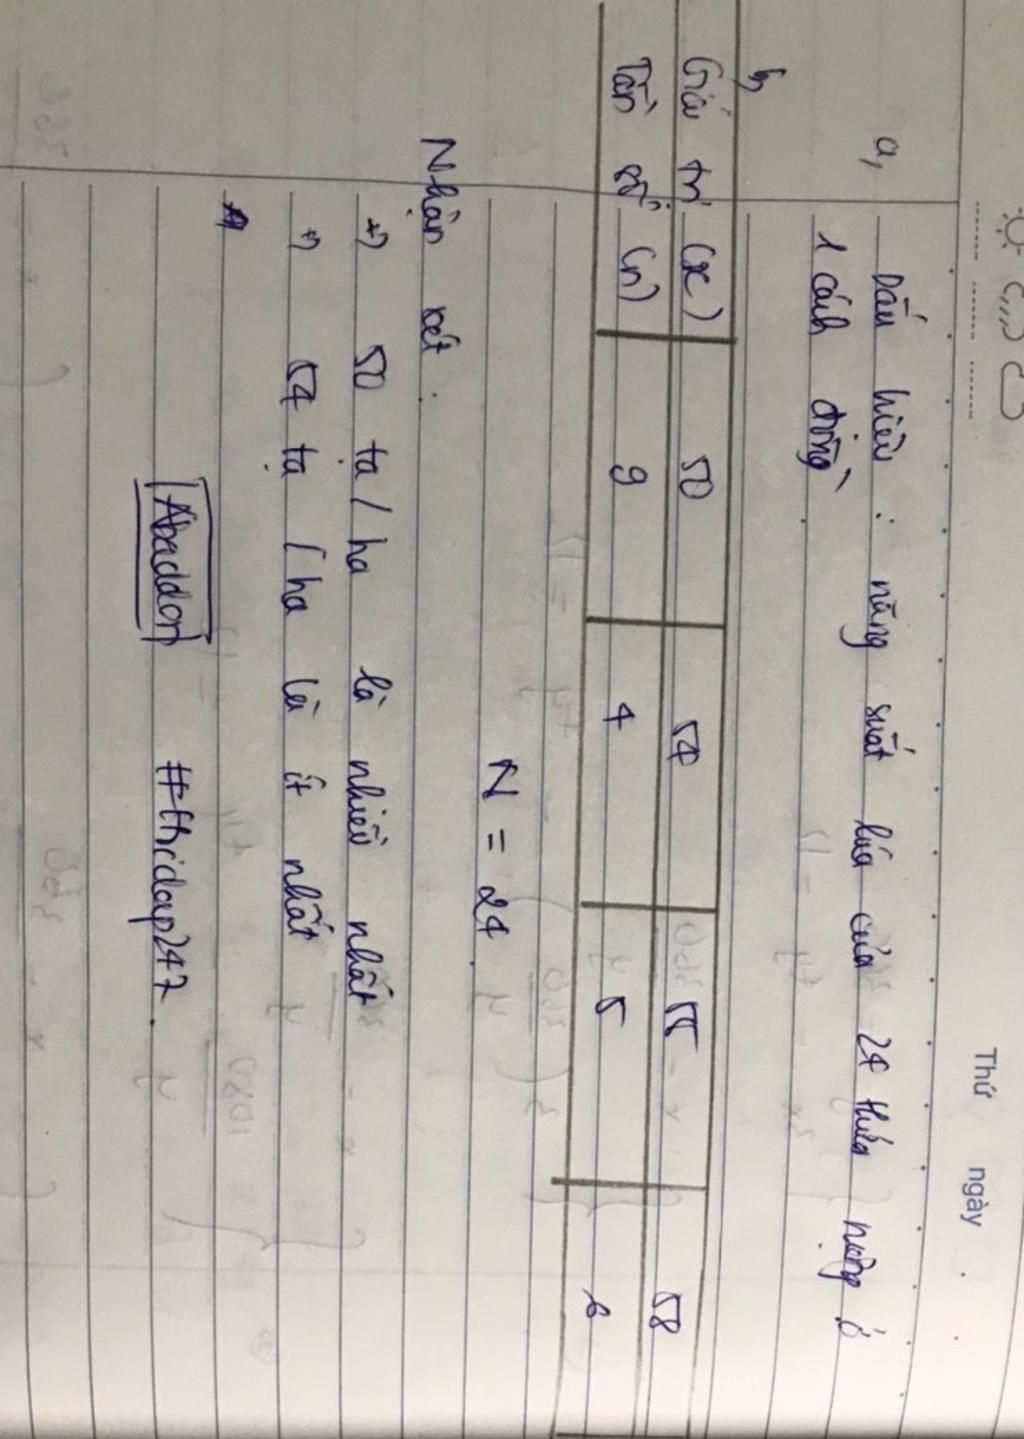 Thứ ngày
a, Dấu hiệu : năng suất lúa của 24 thửa ruộng ở
1 cánh đồng.
b,
Giá trị (x) 50 54 55 58
Tần số (n) 9 4 5 6
N = 24.
Nhận xét :
+) 50 tạ / ha là nhiều nhất
+) 54 tạ / ha là ít nhất
Abaddon #thidap247.